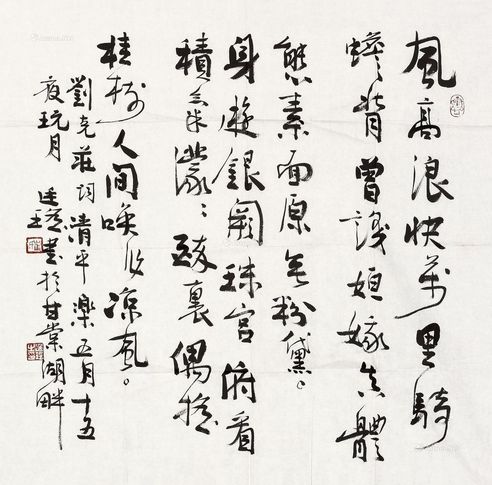 風高浪快萬里騎
蟾背曾識姮娥真體
態素面原無粉黛。
身遊銀闕珠宮俯看
積氣濛〻醉裏偶搖
桂樹人間喚作凉風。
劉克莊詞清平樂五月十五
夜玩月
書於甘棠湖畔